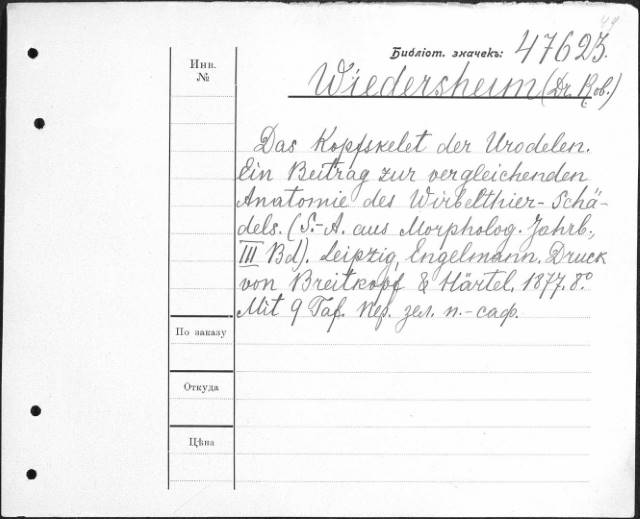 49
Библіот. значекъ: 47623.
Инв.
№
Wiedersheim (Dr. Rob.)
Das Kopfskelet der Urodelen.
Ein Beitrag zur vergleichenden
Anatomie des Wirbelthier-Schä-
dels. (S.-A. aus Morpholog. Jahrb.,
III Bd). Leipzig, Engelmann. Druck
von Breitkopf & Härtel. 1877. 8.º
Mit 9 Taf. Пер. зел. п.-саф.
По заказу
Откуда
Цѣна